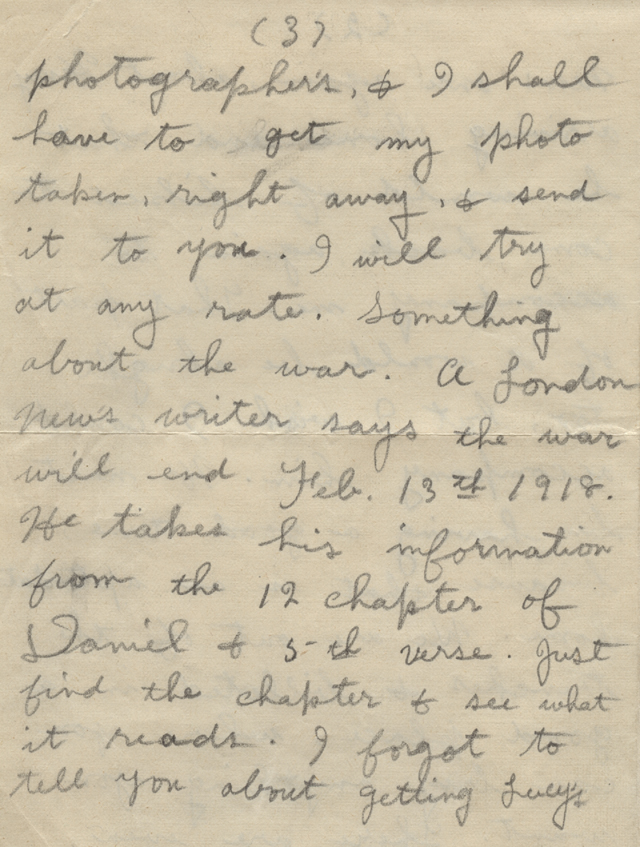 (3)
photographer's, & I shall
have to get my photo
taken, right away, & send
it to you. I will try
at any rate. Something
about the war. A London
news writer says the war
will end Feb. 13th 1918.
He takes his information
from the 12 chapter of
Daniel & 5th verse. Just
find the chapter & see what
it reads. I forgot to
tell you about getting Lucy's